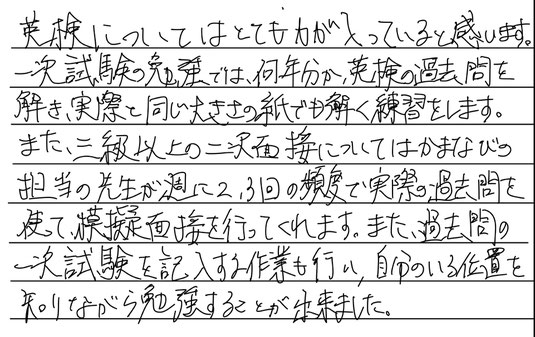 英検についてはとても力が入っていると感じます。
一次試験の勉強では、何年分か、英検の過去問を
解き、実際と同じ大きさの紙でも解く練習をします。
また、三級以上の二次面接についてはかまなびの
担当の先生が週に2,3回の頻度で実際の過去問を
使て、模擬面接を行ってくれます。また、過去問の
一次試験を記入する作業も行い、自分のいる位置を
知りながら勉強することが出来ました。